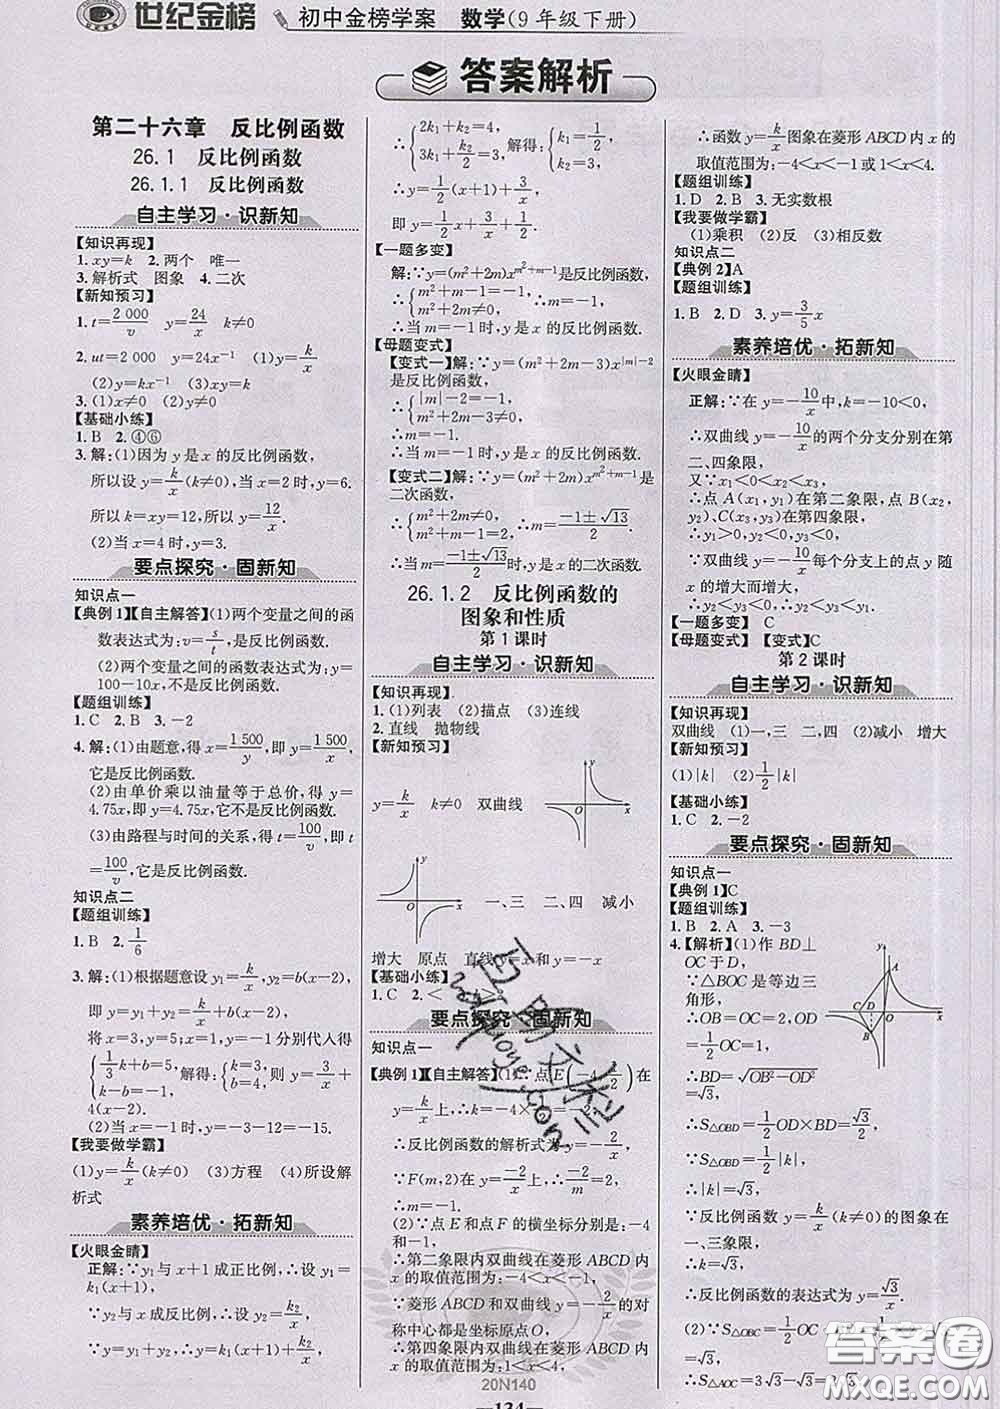 世纪金榜 初中金榜学案 数学(9年级下册)
答案解析
第二十六章 反比例函数
26.1 反比例函数
26.1.1 反比例函数
自主学习·识新知
【知识再现】
1. xy=k 2. 两个 唯一
3. 解析式 图象 4. 二次
【新知预习】
1. t=2 000/v y=24/x k≠0
2. vt=2 000 y=24x⁻¹ (1)y=k/x
(2)y=kx⁻¹ (3)xy=k
3. (1)x≠0 (2)y≠0
【基础小练】
1. B 2. ④⑥
3. 解:(1)因为 y 是 x 的反比例函数,
所以设 y=k/x(k≠0),当 x=2 时,y=6.
所以 k=xy=12,所以 y=12/x.
(2)当 x=4 时,y=3.
要点探究·固新知
知识点一
【典例1】【自主解答】(1)两个变量之间的函
数表达式为:v=s/t,是反比例函数.
(2)两个变量之间的函数表达式为:y=
100-10x,不是反比例函数.
【题组训练】
1. C 2. B 3. -2
4. 解:(1)由题意,得 x=1 500/y,即 y=1 500/x,
它是反比例函数.
(2)由单价乘以油量等于总价,得 y=
4.75x,即 y=4.75x,它不是反比例函数.
(3)由路程与时间的关系,得 t=100/v,即
t=100/v,它是反比例函数.
知识点二
【题组训练】
1. B 2. 1/6
3. 解:(1)根据题意设 y₁=k/x,y₂=b(x-2),
即 y=y₁+y₂=k/x+b(x-2),
将 x=3,y=5;x=1,y=-1 分别代入得
{1/3 k+b=5, k-b=-1, 解得:{k=3, b=4, 则 y=3/x+
4(x-2).
(2)当 x=-1 时,y=-3-12=-15.
【我要做学霸】
(1)y=k/x(k≠0) (3)方程 (4)所设解
析式
素养培优·拓新知
【火眼金睛】
正解:∵y₁ 与 x+1 成正比例,∴设 y₁=
k₁(x+1),
∵y₂ 与 x 成反比例,∴设 y₂=k₂/x,
∵y=y₁+y₂,∴y=k₁(x+1)+k₂/x,
∴{2k₁+k₂=4, 3k₁+k₂/2=3, 解得:{k₁=1/2, k₂=3,
∴y=1/2(x+1)+3/x,
即 y=1/2x+3/x+1/2.
【一题多变】
解:∵y=(m²+2m)x^(m²+m-1)是反比例函数,
∴{m²+m-1=-1, m²+2m≠0, ∴m=-1,
∴当 m=-1 时,y 是 x 的反比例函数.
【母题变式】
【变式一】解:∵y=(m²+2m-3)x^(|m|-2)
是反比例函数,
∴{|m|-2=-1, m²+2m-3≠0,
∴m=-1.
∴当 m=-1 时,y 是 x 的反比例函数.
【变式二】解:∵y=(m²+2m)x^(m²+m-1)是
二次函数,
∴{m²+m-1=2, m²+2m≠0, ∴m=(-1±√13)/2.
∴当 m=(-1±√13)/2 时,y 是 x 的二次函数.
26.1.2 反比例函数的
图象和性质
第1课时
自主学习·识新知
【知识再现】
1. (1)列表 (2)描点 (3)连线
2. 直线 抛物线
【新知预习】
y=k/x k≠0 双曲线 y O x
y O x 一、三 二、四 减小
增大 原点 直线y=x和y=-x
【基础小练】
1. C 2. <
要点探究·固新知
知识点一
【典例1】【自主解答】(1)∵点 E 在
y=k/x 上,
∴反比例函数的解析式为y=-2/x,
∵F(m,2)在 y=-2/x 上,
∴m=-1.
(2)∵点 E 和点 F 的横坐标分别是:-4
和-1,
∴第二象限内双曲线在菱形 ABCD 内
x 的取值范围为:-4<x<-1,
∵菱形 ABCD 和双曲线 y=-2/x 的对
称中心都是坐标原点 O,
∴第四象限内双曲线在菱形 ABCD 内
x 的取值范围为:1<x<4,
∴函数 y=k/x 图象在菱形 ABCD 内 x 的
取值范围为:-4<x<-1 或 1<x<4.
【题组训练】
1. D 2. B 3. 无实数根
【我要做学霸】
(1)乘积 (2)反 (3)相反数
知识点二
【典例2】A
【题组训练】
1. B 2. D 3. y=3/5 x
素养培优·拓新知
【火眼金睛】
正解:∵在 y=-10/x 中,k=-10<0,
∴双曲线 y=-10/x 的两个分支分别在第
二、四象限,
又∵x₁<0<x₂<x₃,
∴点 A(x₁,y₁)在第二象限,点 B(x₂,
y₂),C(x₃,y₃)在第四象限,
∴y₁>0,y₂<0,y₃<0,
∵双曲线 y=-10/x 每个分支上的点 y 随 x
的增大而增大,
∴y₂<y₃<0,∴y₂<y₃<y₁.
【一题多变】 C
【母题变式】 【变式】C
第2课时
自主学习·识新知
【知识再现】
双曲线 (1)一、三 二、四 (2)减小 增大
【新知预习】
(1)|k| (2)1/2|k|
【基础小练】
1. C 2. -2
要点探究·固新知
知识点一
【典例1】C
【题组训练】
1. B 2. A 3. -3
4. 【解析】(1)作 BD⊥
OC 于 D,
∵△BOC 是等边三
角形,
∴OB=OC=2,OD
=1/2 OC=1,
∴BD=√(OB²-OD²)
=√3,
∴S△OBD=1/2 OD×BD=√3/2,
∵S△OBD=1/2|k|,
∴|k|=√3,
∵反比例函数 y=k/x(k≠0)的图象在
一、三象限,
∴k=√3,
∴反比例函数的表达式为 y=√3/x.
(2)∵S△OBC=1/2 OC
∴S△AOC=3√3-√3=2√3,
20N140
134
答案圈
MXQE.COM